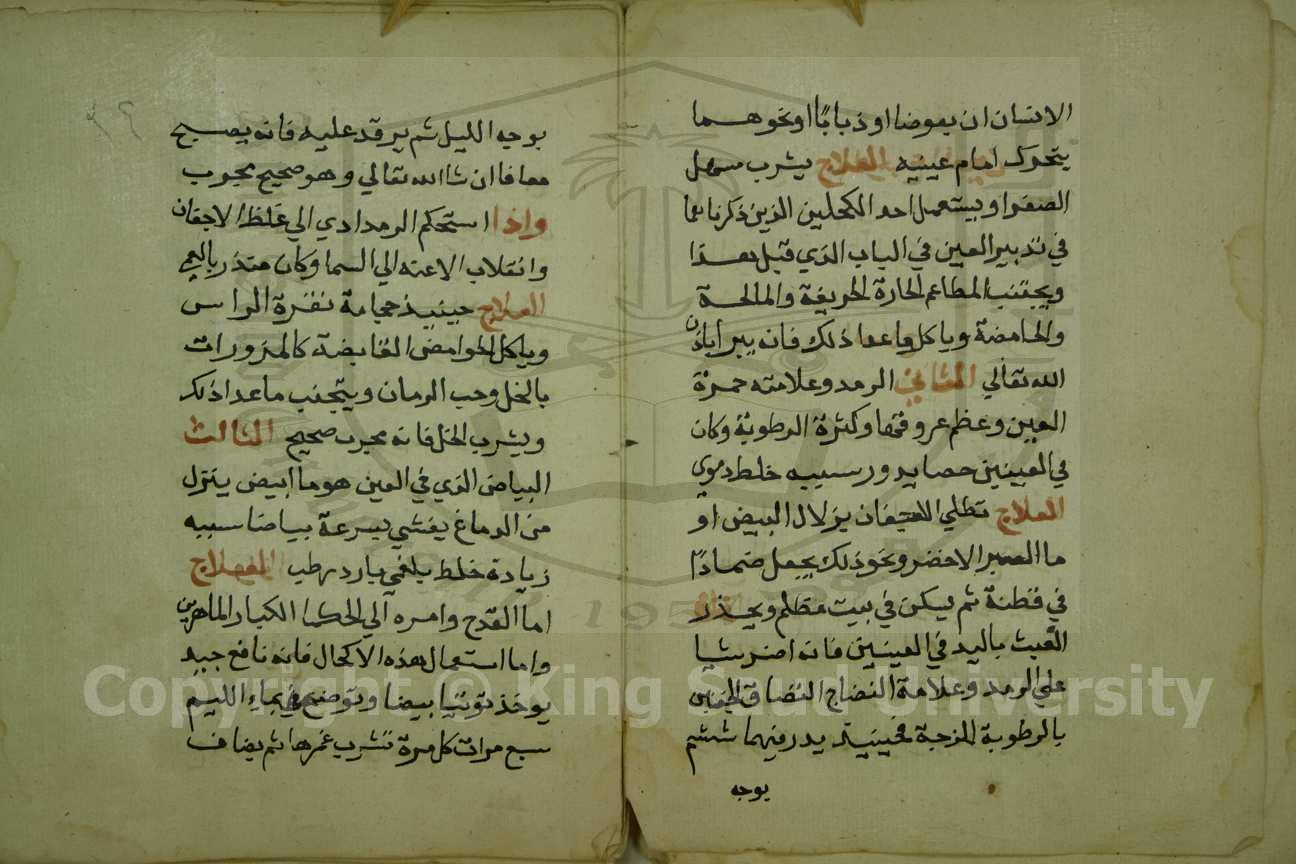 الانسان ان بعوضا او ذبابًا او نحوهما
يتحرك امام عينيه العلاج يشرب سهل
الصفرا ويستعمل احد الكحلين الذين ذكرناهما
في تدبير العين في الباب الذي قبل هذا
ويجتنب المطاعم الحارة الحريفة والمالحة
والحامضة وياكل ما عدا ذلك فانه يبرا باذن
الله تعالي الثاني الرمد وعلامته حمرة
العين وعظم عروقها وكثرة الرطوبة وكان
في العينين حصا يدور سببه خلط دموي
العلاج تطلي الاجفان بزلال البيض او
ما الصبر الاخضر ونحو ذلك يجعل ضمادًا
في قطنة ثم يسكن في بيت مظلم ويحذر
العبث باليد في العينين فانه اضر شيا
علي الرمد وعلامة النضاج التصاق الجفنين
بالرطوبة المزجة فحينيذ يدر فيهما ششم
يوجه
٢٩
بوجه الليل ثم يرقد عليه فانه يصبح
معافا ان شاالله تعالي وهو صحيح مجرب
واذا استحكم الرمد ادي الي غلظ الاجفان
وانقلاب الاعنه الي السما وكان منذر بالعمي
العلاج حينيذ حجامة نقرة الراس
وياكل الحوامض القابضة كالمزورات
بالخل وحب الرمان ويتجنب ما عدا ذلك
ويشرب الخل فانه مجرب صحيح الثالث
البياض الذي في العين هو ما ابيض ينزل
من الدماغ يغشي بسرعة بياضا سببه
زيادة خلط بلغمي بارد رطب العلاج
اما القدح وامره الي الحكما الكبار الماهرين
واما استعمال هذه الاكحال فانه نافع جيد
يوخذ توتيا بيضا وتوضع في ماء الليم
سبع مرات كل مرة تشرب غمرها ثم يضاف
Copyright © King Saud University